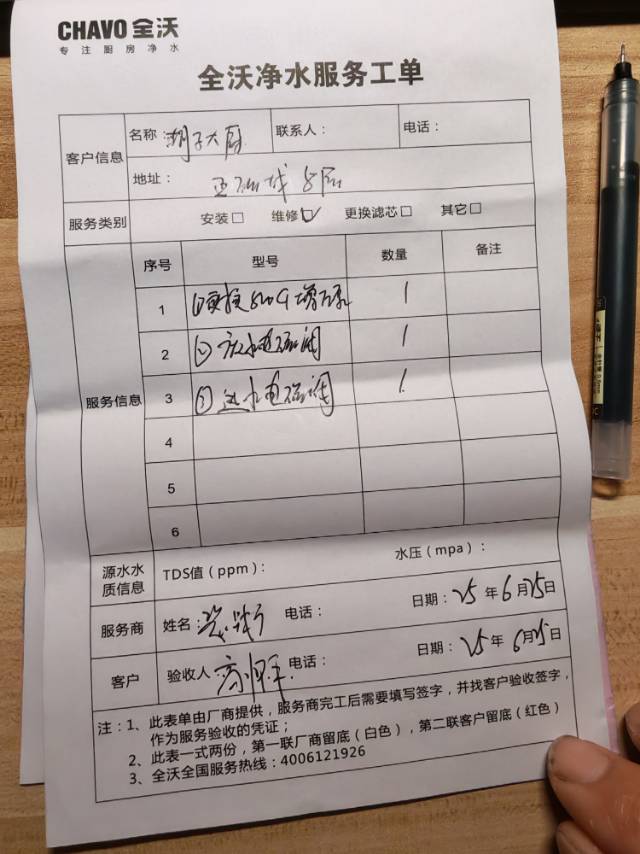 CHAVO 全沃
专注厨房净水
全沃净水服务工单
客户信息
名称 胡子大厨 联系人： 电话：
地址： 8层
服务类别 安装□ 维修☑ 更换滤芯□ 其它□
服务信息
序号 型号 数量 备注
1 ①更换800G增压泵 1
2 ②废水电磁阀 1
3 ③进水电磁阀 1
4
5
6
源水水质信息 TDS值（ppm）： 水压（mpa）：
服务商 姓名： 电话： 日期：25年6月25日
客户 验收人 电话： 日期：25年6月25日
注：1、此表单由厂商提供，服务商完工后需要填写签字，并找客户验收签字，
作为服务验收的凭证；
2、此表一式两份，第一联厂商留底（白色），第二联客户留底（红色）
3、全沃全国服务热线：4006121926